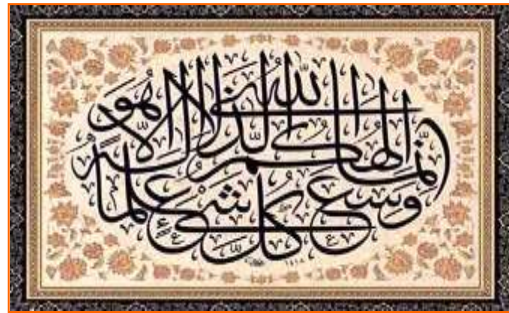 إنما إلهكم الله الذي لا إله إلا هو
وسع كل شيء علما
١٤١٨